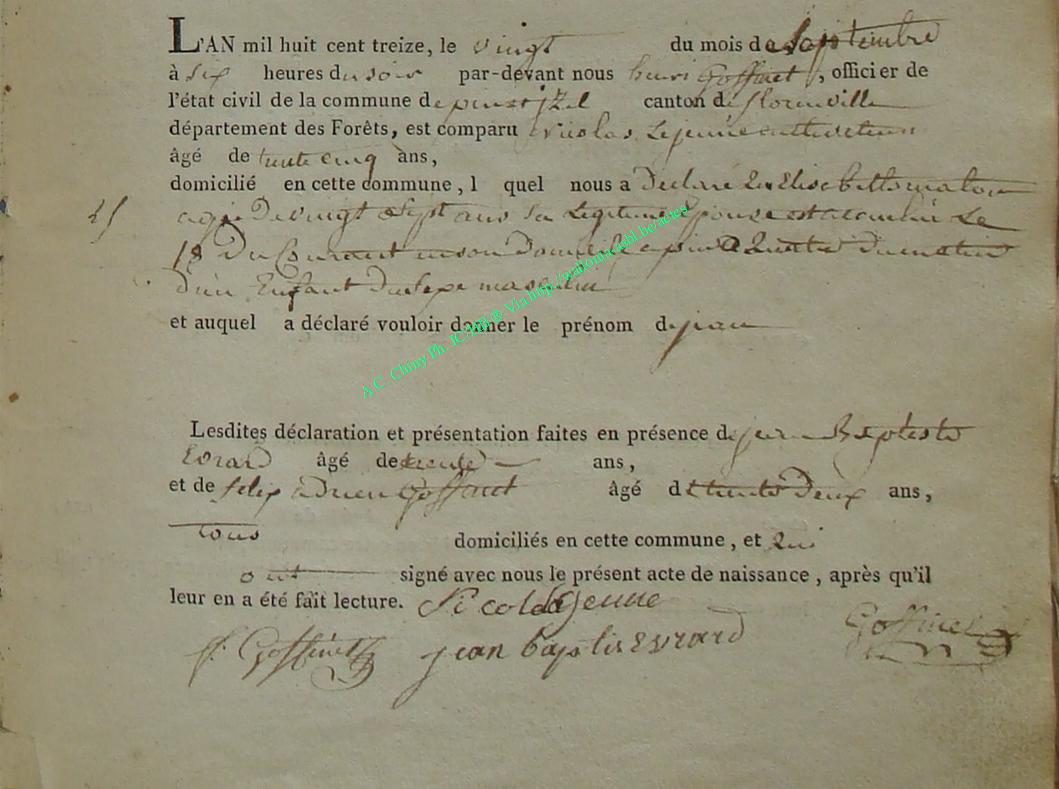 L'AN mil huit cent treize, le vingt du mois de Septembre
à six heures du soir par-devant nous henri Goffinet, officier de
l'état civil de la commune de canton de florenville
département des Forêts, est comparu Nicolas Lejeune cultivateur
âgé de trente cinq ans,
domicilié en cette commune, l quel nous a Declaré que Elisabeth
agé De vingt Sept ans sa Legitime Epouse est accouchée Le
18 Du Courant en son Domicile a du matin
25
d'un Enfant du Sexe masculin
et auquel a déclaré vouloir donner le prénom de jean
A.C. Chiny Ph. JC.
Lesdites déclaration et présentation faites en présence de jean Baptiste
Evrard âgé de trente ans,
et de felix adrien Goffinet âgé de trente Deux ans,
tous domiciliés en cette commune, et qui
ont signé avec nous le présent acte de naissance, après qu'il
leur en a été fait lecture. Nicolas Lejeune
f. Goffinet jean baptis Evrard Goffinet